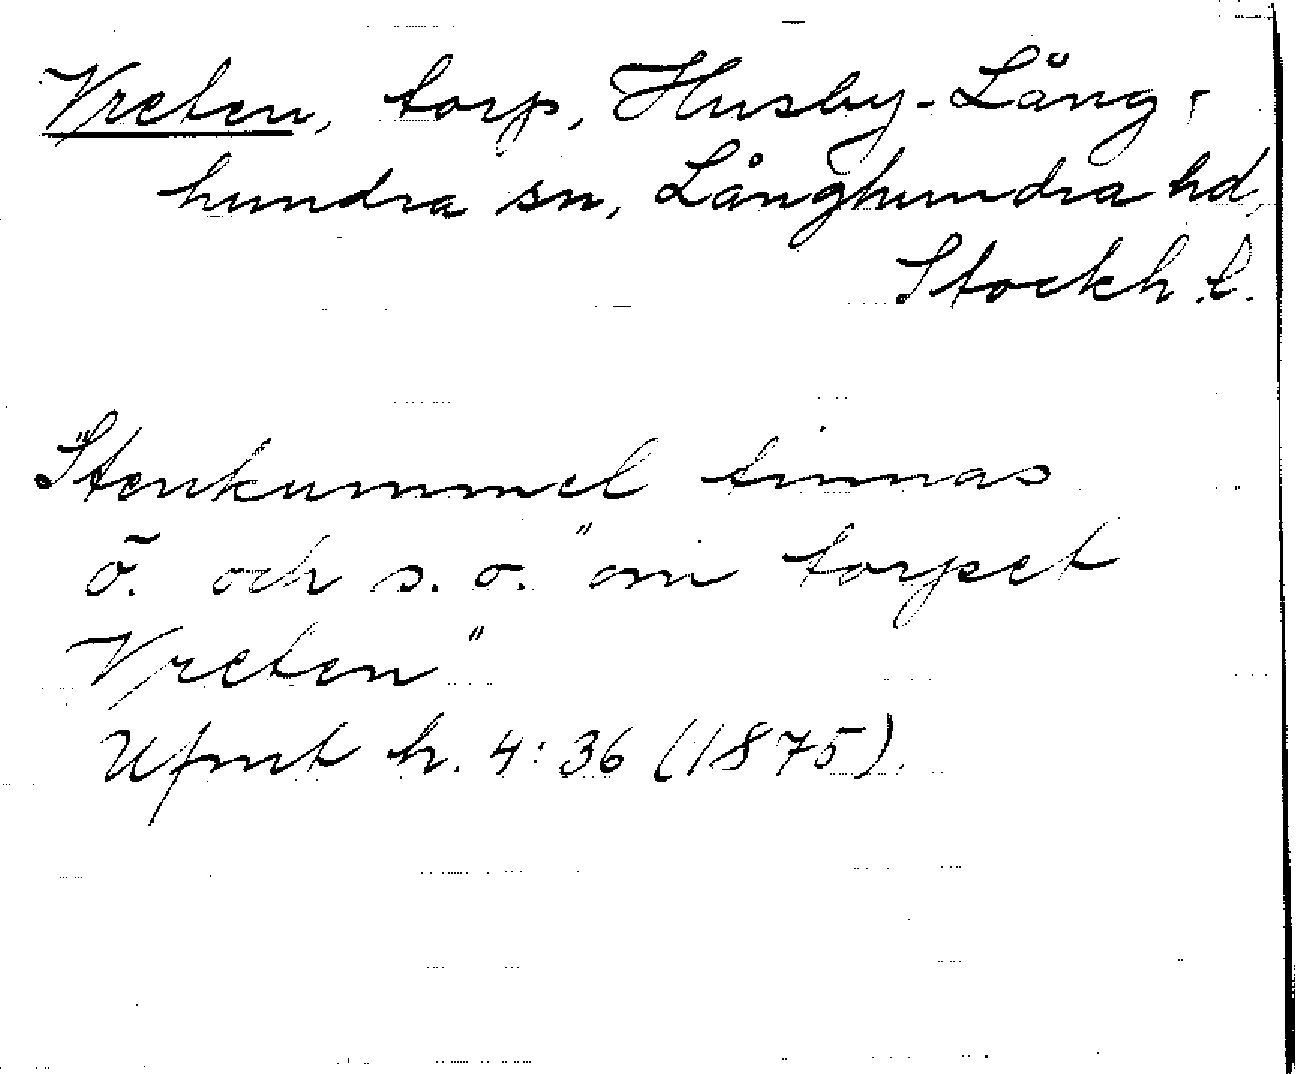 Vreten, torp, Husby-Lång-
hundra sn, Långhundra hd,
Stockh. l.
"Stenkummel finnas
ö. och s. o. "om torpet
Vreten"
Ufmt h. 4:36 (1875).